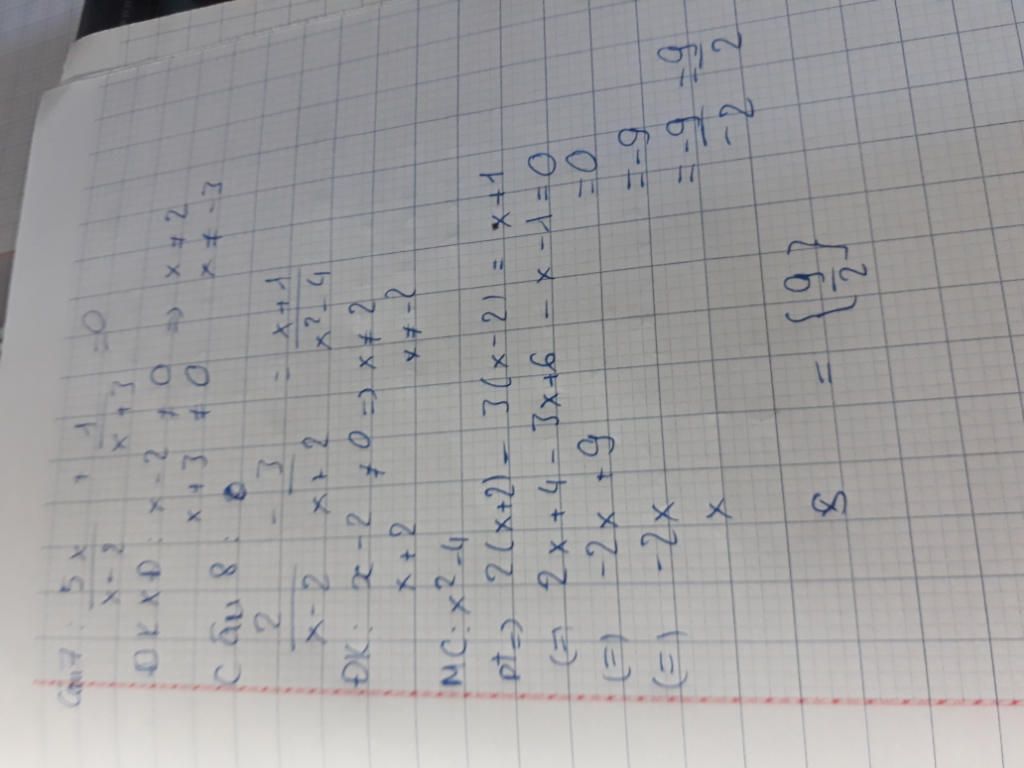 Câu 7: 5x/x-2 + 1/x+3 = 0
ĐKXĐ: x-2 ≠ 0 => x ≠ 2
x+3 ≠ 0 x ≠ -3
Câu 8:
2/x-2 - 3/x+2 = x+1/x²-4
ĐK: x-2 ≠ 0 => x ≠ 2
x+2 x ≠ -2
MC: x²-4
pt => 2(x+2) - 3(x-2) = x+1
(=) 2x+4 - 3x+6 - x - 1 = 0
(=) -2x + 9 = 0
(=) -2x = -9
x = -9/-2 = 9/2
S = {9/2}